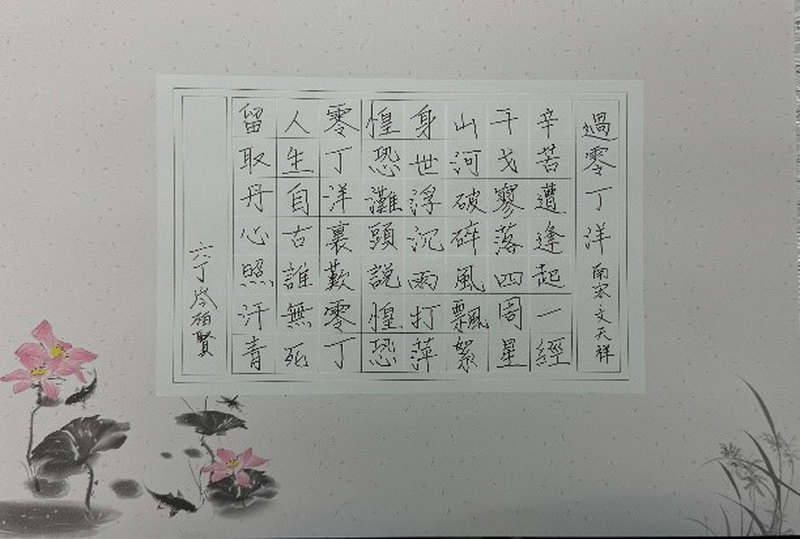 過零丁洋 南宋文天祥
辛苦遭逢起一經
干戈寥落四周星
山河破碎風飄絮
身世浮沉雨打萍
惶恐灘頭說惶恐
零丁洋裏歎零丁
人生自古誰無死
留取丹心照汗青
六丁 岑栢賢